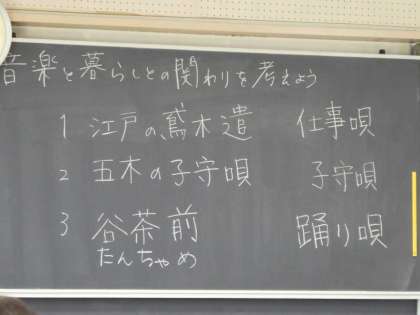 音楽と暮らしとの関わりを考えよう
1 江戸の鳶木遣 仕事唄
2 五木の子守唄 子守唄
3 谷茶前 踊り唄
たんちゃめ